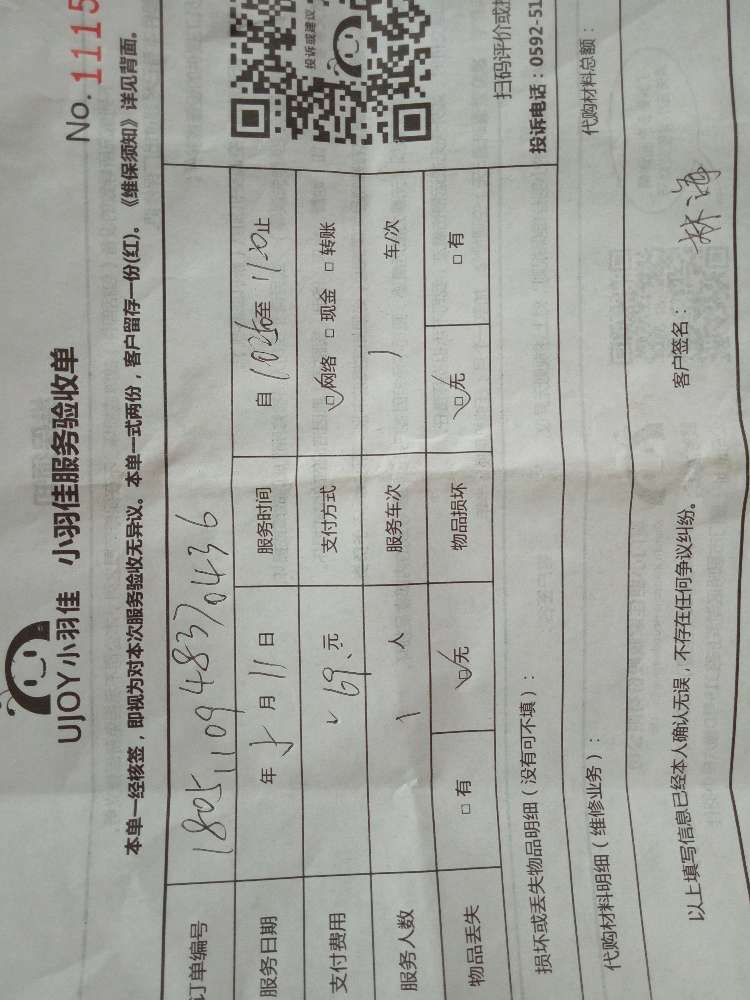 No. 1115
UJOY小羽佳 小羽佳服务验收单
本单一经核签，即视为对本次服务验收无异议。本单一式两份，客户留存一份(红)。《维保须知》详见背面。
订单编号 1805110948370436
服务日期 年 5 月 11 日 服务时间 自 至 11:20 止
支付费用 69 元 支付方式 ☑网络 □现金 □转账
服务人数 1 人 服务车次 1 车/次
物品丢失 □有 ☑无 物品损坏 ☑无 □有
投诉或建议
扫码评价或
投诉电话：0592-51
损坏或丢失物品明细（没有可不填）：
代购材料明细（维修业务）： 代购材料总额：
以上填写信息已经本人确认无误，不存在任何争议纠纷。 客户签名： 林海